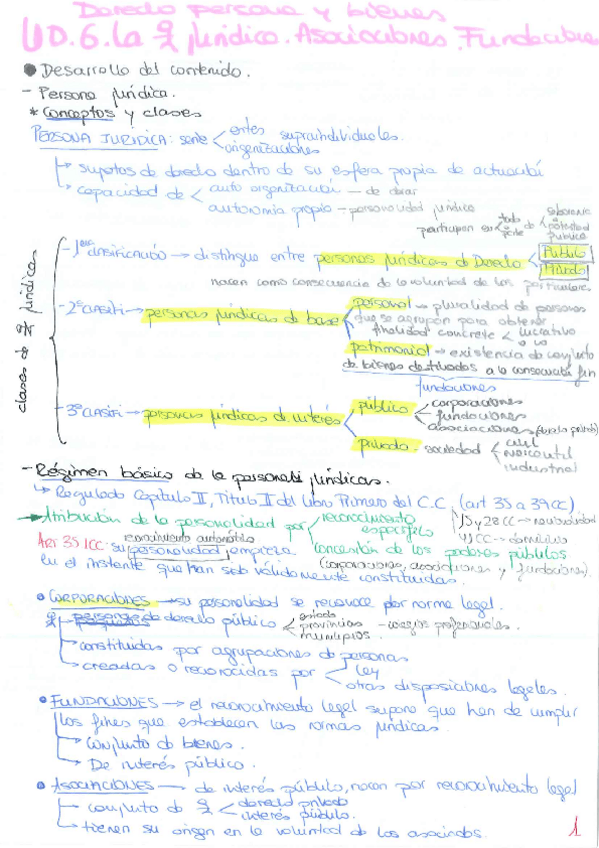 Derecho persona y bienes
UD.6. La pª jurídica. Asociaciones. Fundacione
● Desarrollo del contenido.
- Persona jurídica.
* Conceptos y clases
PERSONA JURÍDICA: serie entes supraindividuales.
organizaciones
→ sujetos de derecho dentro de su esfera propia de actuació
→ capacidad de auto organización — de obrar
autonomía propia — personalidad jurídica
participan en todo o parte de soberanía o potestad pública
clases de pª jurídicas
- 1era clasificació → distingue entre personas jurídicas de Derecho Público
Privado
nacen como consecuencia de la voluntad de los particulares.
- 2ª clasifi → personas jurídicas de base personal → pluralidad de personas
que se agrupan para obtener
finalidad concreta < lucrativo
o no
patrimonial → existencia de conjunto
de bienes destinados a la consecución fin
fundaciones
- 3ª clasifi → personas jurídicas de interés público corporaciones
fundaciones
asociaciones
privado - sociedad civil
mercantil
industrial
- Régimen básico de la personali jurídicas.
↳ Regulado Capítulo II, Título II del Libro Primero del C.C. (art 35 a 39 CC)
→ Atribución de la personalidad por reconocimiento
específico
concesión de los poderes públicos
(corporaciones, asociaciones y fundaciones).
y 28 CC → nacionalidad
41 CC → domicilio
reconocimiento automático
Art 35.1 CC su personalidad empieza
en el instante que han sido válidamente constituidas.
● CORPORACIONES → su personalidad se reconoce por norma legal.
pª de derecho público estado
provincias - colegios profesionales.
municipios.
→ constituidas por agrupaciones de personas
→ creadas o reconocidas por ley
otras disposiciones legales.
● FUNDACIONES → el reconocimiento legal supone que han de cumplir
los fines que establecen las normas jurídicas.
→ Conjunto de bienes.
→ De interés público.
● ASOCIACIONES → de interés público, nacen por reconocimiento legal
→ conjunto de pª derecho privado
interés público.
→ tienen su origen en la voluntad de los asociados.
1